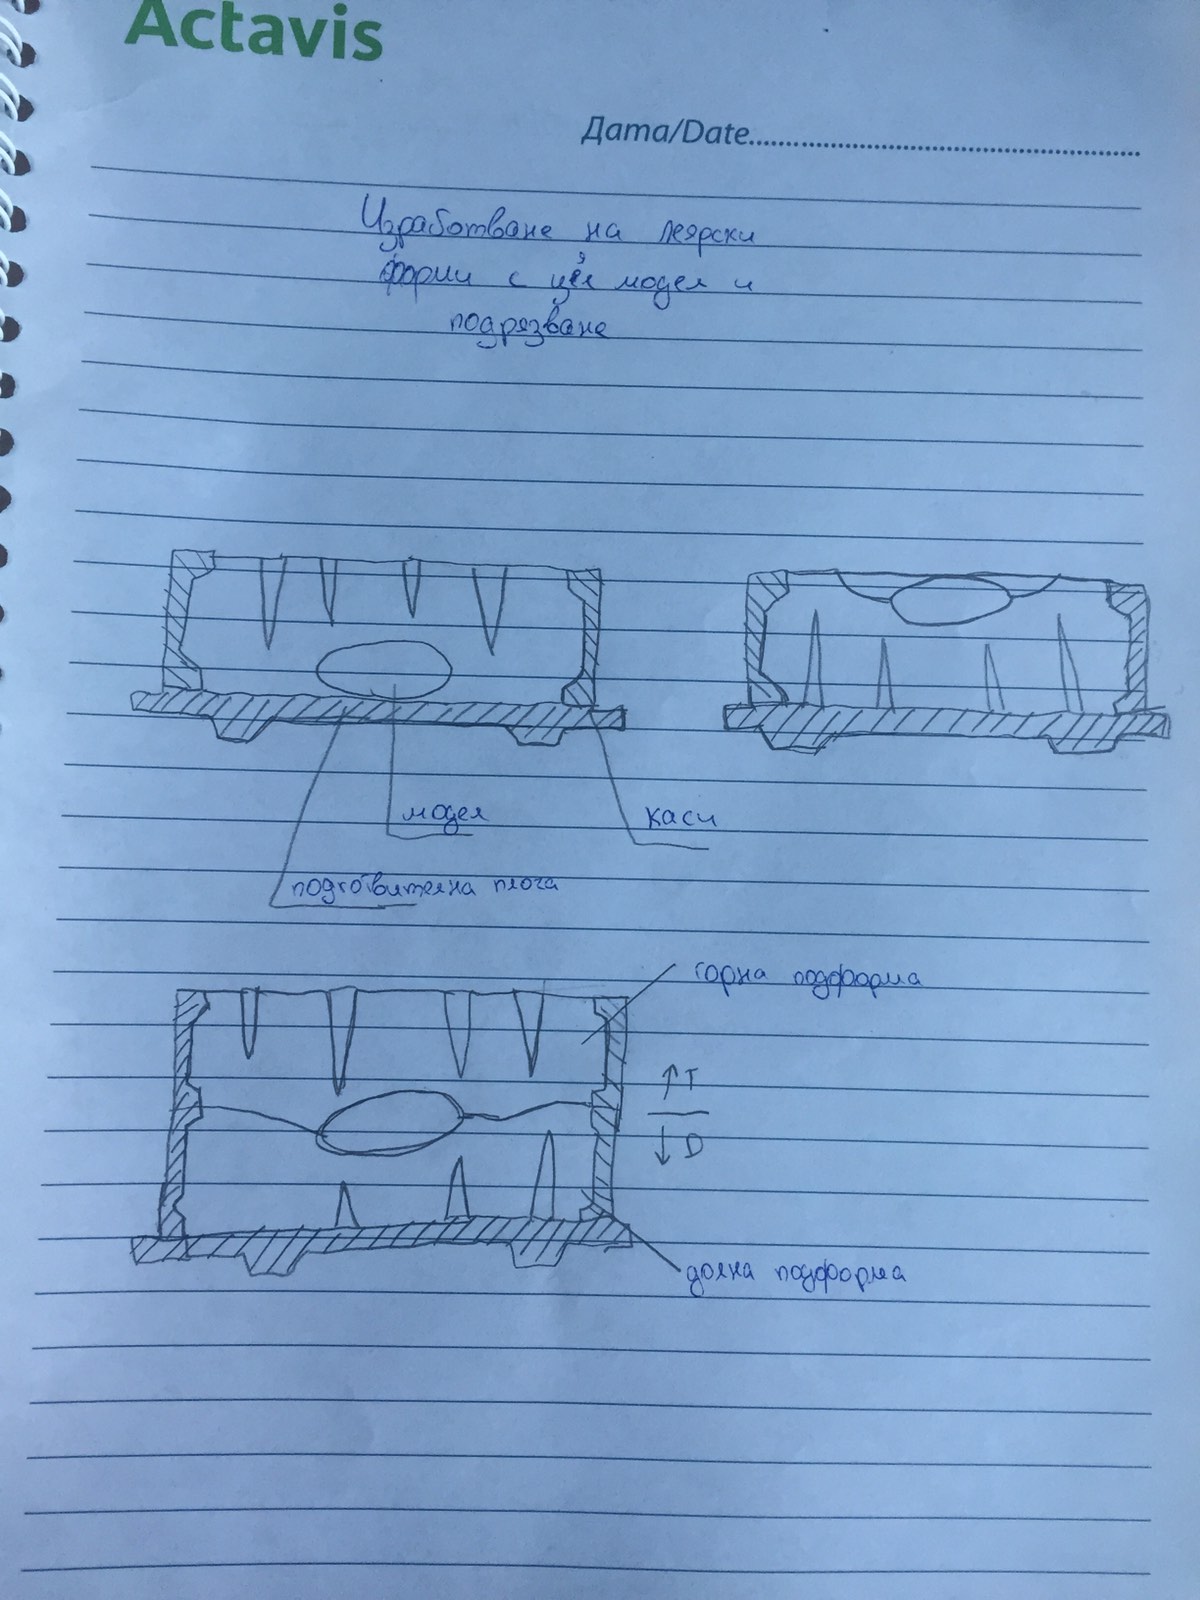 Actavis
Дата/Date
Изработване на леярски
форми с цял модел и
подрязване
модел
каси
подготвителна плоча
горна подформа
↑ Т
↓ D
долна подформа